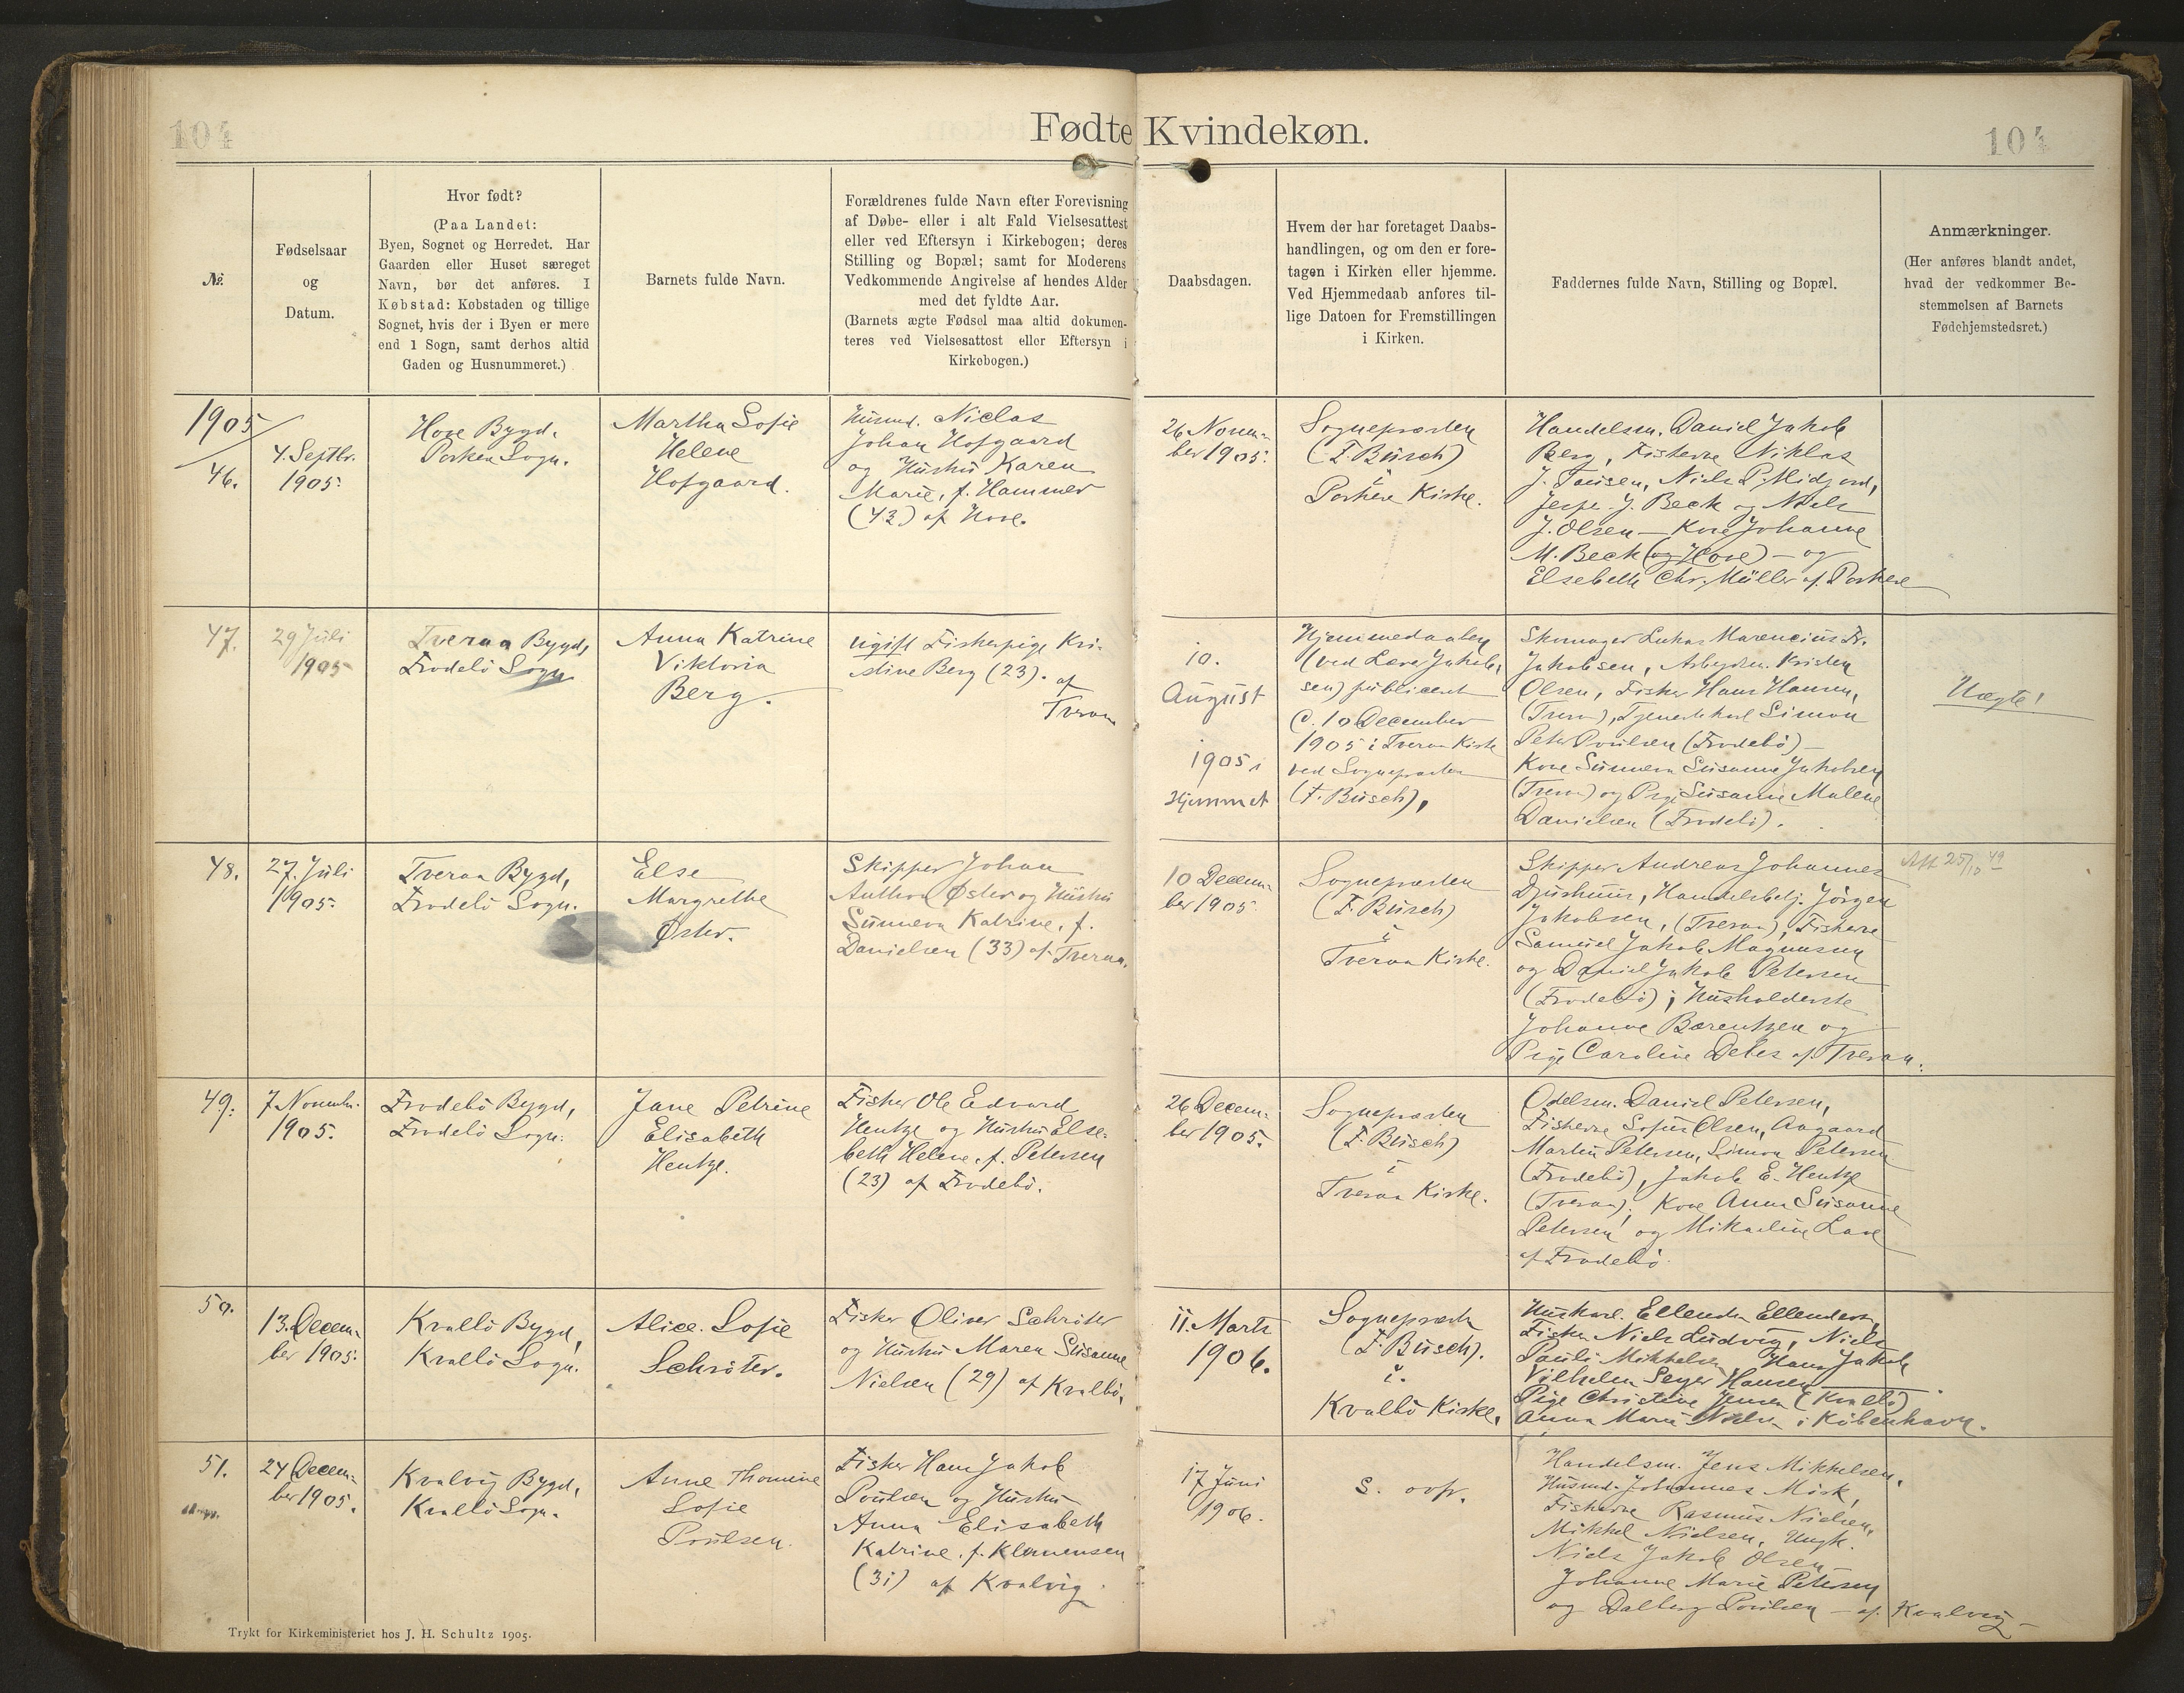 104
Fødte Kvindekøn.
104
№.
Fødselsaar
og
Datum.
Hvor født?
(Paa Landet:
Byen, Sognet og Herredet. Har
Gaarden eller Huset særeget
Navn, bør det anføres. I
Købstad: Købstaden og tillige
Sognet, hvis der i Byen er mere
end 1 Sogn, samt derhos altid
Gaden og Husnummeret.)
Barnets fulde Navn.
Forældrenes fulde Navn efter Forevisning
af Døbe- eller i alt Fald Vielsesattest
eller ved Eftersyn i Kirkebogen; deres
Stilling og Bopæl; samt for Moderens
Vedkommende Angivelse af hendes Alder
med det fyldte Aar.
(Barnets ægte Fødsel maa altid dokumen-
teres ved Vielsesattest eller Eftersyn i
Kirkebogen.)
Daabsdagen.
Hvem der har foretaget Daabs-
handlingen, og om den er fore-
tagen i Kirken eller hjemme.
Ved Hjemmedaab anføres til-
lige Datoen for Fremstillingen
i Kirken.
Faddernes fulde Navn, Stilling og Bopæl.
Anmærkninger.
(Her anføres blandt andet,
hvad der vedkommer Be-
stemmelsen af Barnets
Fødehjemstedsret.)
1905
46.
4. Septbr.
1905.
Hove Bygd.
Porkere Sogn.
Martha Sofie
Helene
Hofgaard.
Husmd. Niclas
Johan Hofgaard
og Hustru Karen
Marie, f. Hammer
(43) af Hove.
26 Novem-
ber 1905.
Sognepræsten
(F. Busch)
i
Porkere Kirke.
Handelsm. Daniel Jakob
Berg, Fiskerne Niklas
J. Joensen, Niels P. Midjord,
Jesper J. Beck og Niels
J. Olsen – Kone Johanne
M. Beck (og Hove) – og
Elsebeth Chr. Müller af Porkere
47.
29 Juli
1905
Tveraa Bygd,
Frodebö Sogn
Anna Katrine
Viktoria
Berg.
ugift Fiskerpige Kri-
stine Berg (23). af
Tveraa
10.
August
1905 i
Hjemmet
Hjemmedaaben
(ved Lærer Jakob-
sen) publiceret
d. 10 December
1905 i Tveraa Kirke
ved Sognepræsten
(F. Busch),
Skomager Lukas Marencius Fr.
Jakobsen, Arbejdsm. Kristen
Olsen, Fisker Hans Hansen,
(Tveraa), Tjenestekarl Simon
Peter Poulsen (Frodebö) –
Kone Sunneva Susanne Jakobsen
(Tveraa) og Pige Susanne Malene
Danielsen (Frodebö).
Uægte!
48.
27. Juli
1905.
Tveraa Bygd,
Frodebö Sogn.
Else
Margrethe
Øster.
Skipper Johan
Anthon Øster og Hustru
Sunneva Katrine, f.
Danielsen (33) af Tveraa.
10 Decem-
ber 1905.
Sognepræsten
(F. Busch)
i
Tveraa Kirke.
Skipper Andreas Johannes
Djurhuus, Handelsbetj. Jörgen
Jakobsen, (Tveraa), Fiskere
Samuel Jakob Magnussen
og Daniel Jakob Petersen
(Frodebö); Husholderske
Johanne Bærentzen og
Pige Caroline Debes af Tveraa.
Att 25/10 49
49.
7 Novembr.
1905.
Frodebö Bygd,
Frodebö Sogn.
Jane Petrine
Elisabeth
Hentze.
Fisker Ole Edvard
Hentze og Hustru Else-
beth Helene, f. Petersen
(23) af Frodebö.
26 Decem-
ber 1905.
Sognepræsten
(F. Busch)
i
Tveraa Kirke.
Odelsm. Daniel Petersen,
Fiskerne Sofus Olsen, Aagaard
Martin Petersen, Simon Petersen
(Frodebö), Jakob E. Hentze
(Tveraa). Kone Anna Susanne
Petersen og Mikaeline
af Frodebö.
50.
13. Decem-
ber 1905.
Kvalbö Bygd,
Kvalbö Sogn.
Alice. Sofie
Schröter.
Fisker Oliver Schröter
og Hustru Maren Susanne
Nielsen (29) af Kvalbö,
11. Marts
1906.
Sognepræsten
(F. Busch).
i.
Kvalbö Kirke.
Huskarl. Ellendur Ellendersen,
Fisker Niels Ludvig, Niels
Pauli Mikkelsen, Hans Jakob
Vilhelm Seyer Hansen
Pige Christine Jensen (Kvalbö)
Anna Marie Nielsen i Köbenhavn.
51.
24 Decem-
ber 1905.
Kvalvig Bygd,
Kvalbö Sogn.
Anne Thomine
Sofie
Poulsen.
Fisker Hans Jakob
Poulsen og Hustru
Anna Elisabeth
Katrine, f. Klemensen
(31) af Kvalvig
17 Juni
1906.
S. ovfr.
Handelsm. Jens Mikkelsen,
Husmd. Johannes Mörk,
Fiskerne Rasmus Nielsen,
Mikkel Nielsen, Ungk.
Niels Jakob Olsen –
Johanne Marie Petersen
og Dalberg Poulsen – af Kvalvig –
Trykt for Kirkeministeriet hos J. H. Schultz 1905.